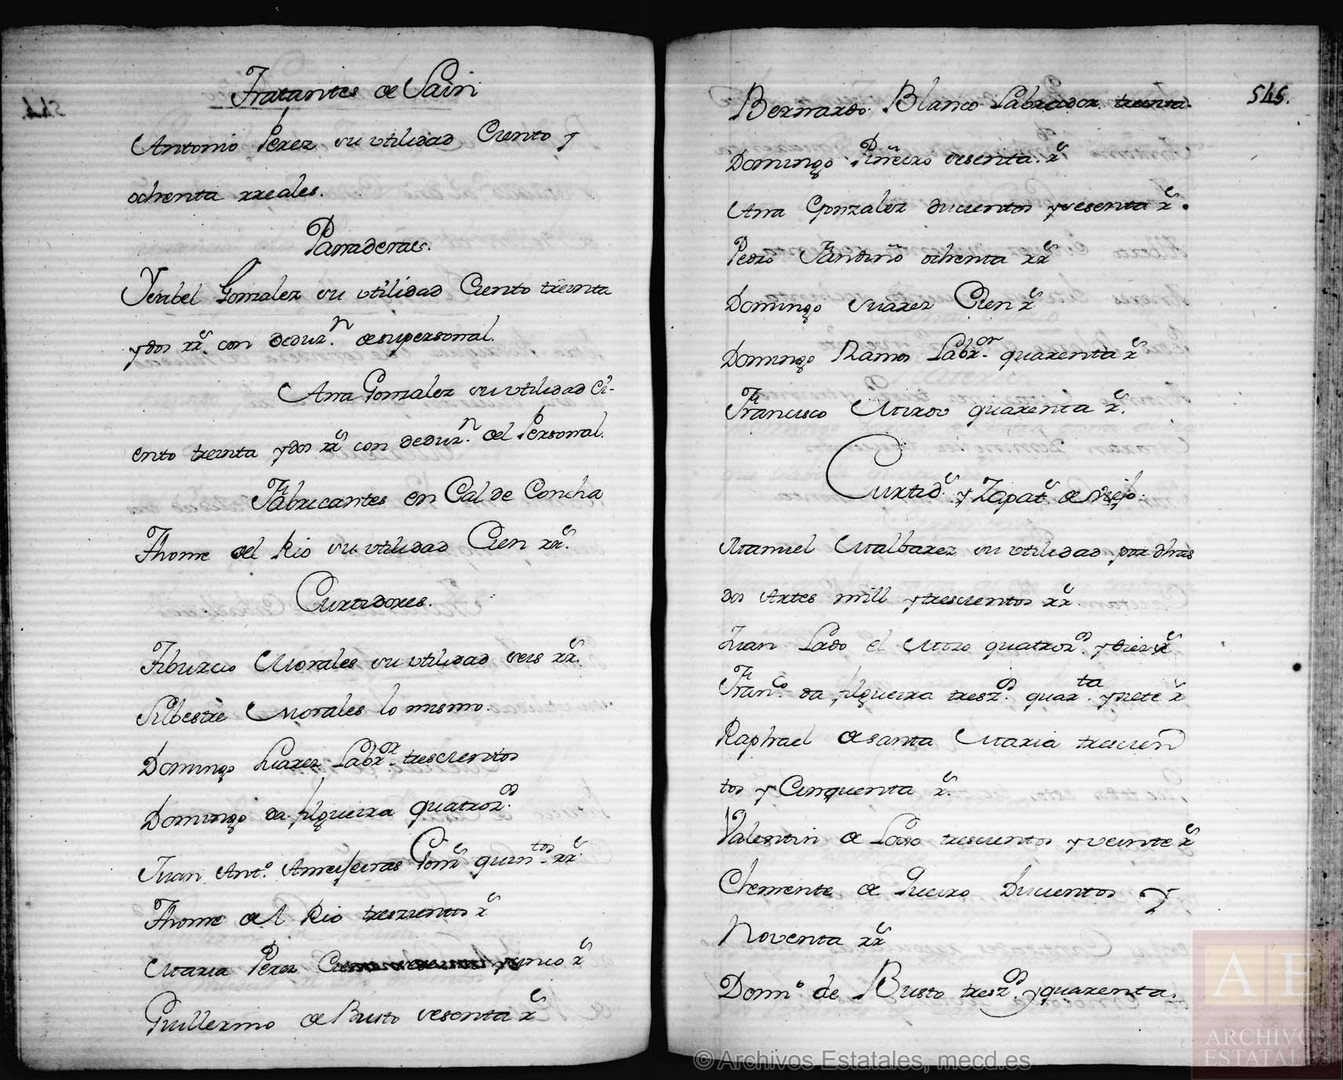 Tratantes de Sain
Antonio Perez su utilidad Ciento y
ochenta rreales.
Panaderas.
Ysabel Gonzalez su utilidad Ciento treinta
y dos rr.s con deduz.n de supersonal.
Ana Gonzalez su utilidad Ci-
ento treinta y dos rr.s con deduz.n del Personal.
Fabricantes en Cal de Concha
Thome del Rio su utilidad Cien rr.s
Curtidores.
Tiburcio Morales su utilidad seis rr.s
Silbestre Morales lo mismo.
Domingo Suarez Labr.or trescientos
Domingo da filgueira quatroz.os
Juan Ant.o Ameijeiras quin.tos rr.s
Thome del Rio trescientos r.s
Maria Perez y cinco r.s
Guillermo de Busto sesenta r.s
544
545.
Bernardo Blanco Labrador treinta
Domingo Piñeiro sesenta r.s
Ana Gonzalez ducientos y sesenta r.s
Pedro Fandiño ochenta rr.s
Domingo Suarez Cien r.s
Domingo Ramos Labr.or quarenta r.s
Francisco quarenta r.s
Curtid.s y Zapat.s de viejo.
Manuel Malbarez su utilidad por dhas
dos Artes mill y trescientos rr.s
Juan Lado el Mozo quatroz.s y diez r.s
Fran.co da filgueira tresz.os quar.ta y siete r.s
Raphael de santa Maria trescien
tos y Cinquenta r.s
Valentin de Lado trescientos y veinte r.s
Clemente de Queiro Ducientos y
Noventa rr.s
Dom.o de Busto tresz.os y quarenta.
© Archivos Estatales, mecd.es
AE
ARCHIVOS
ESTATALES